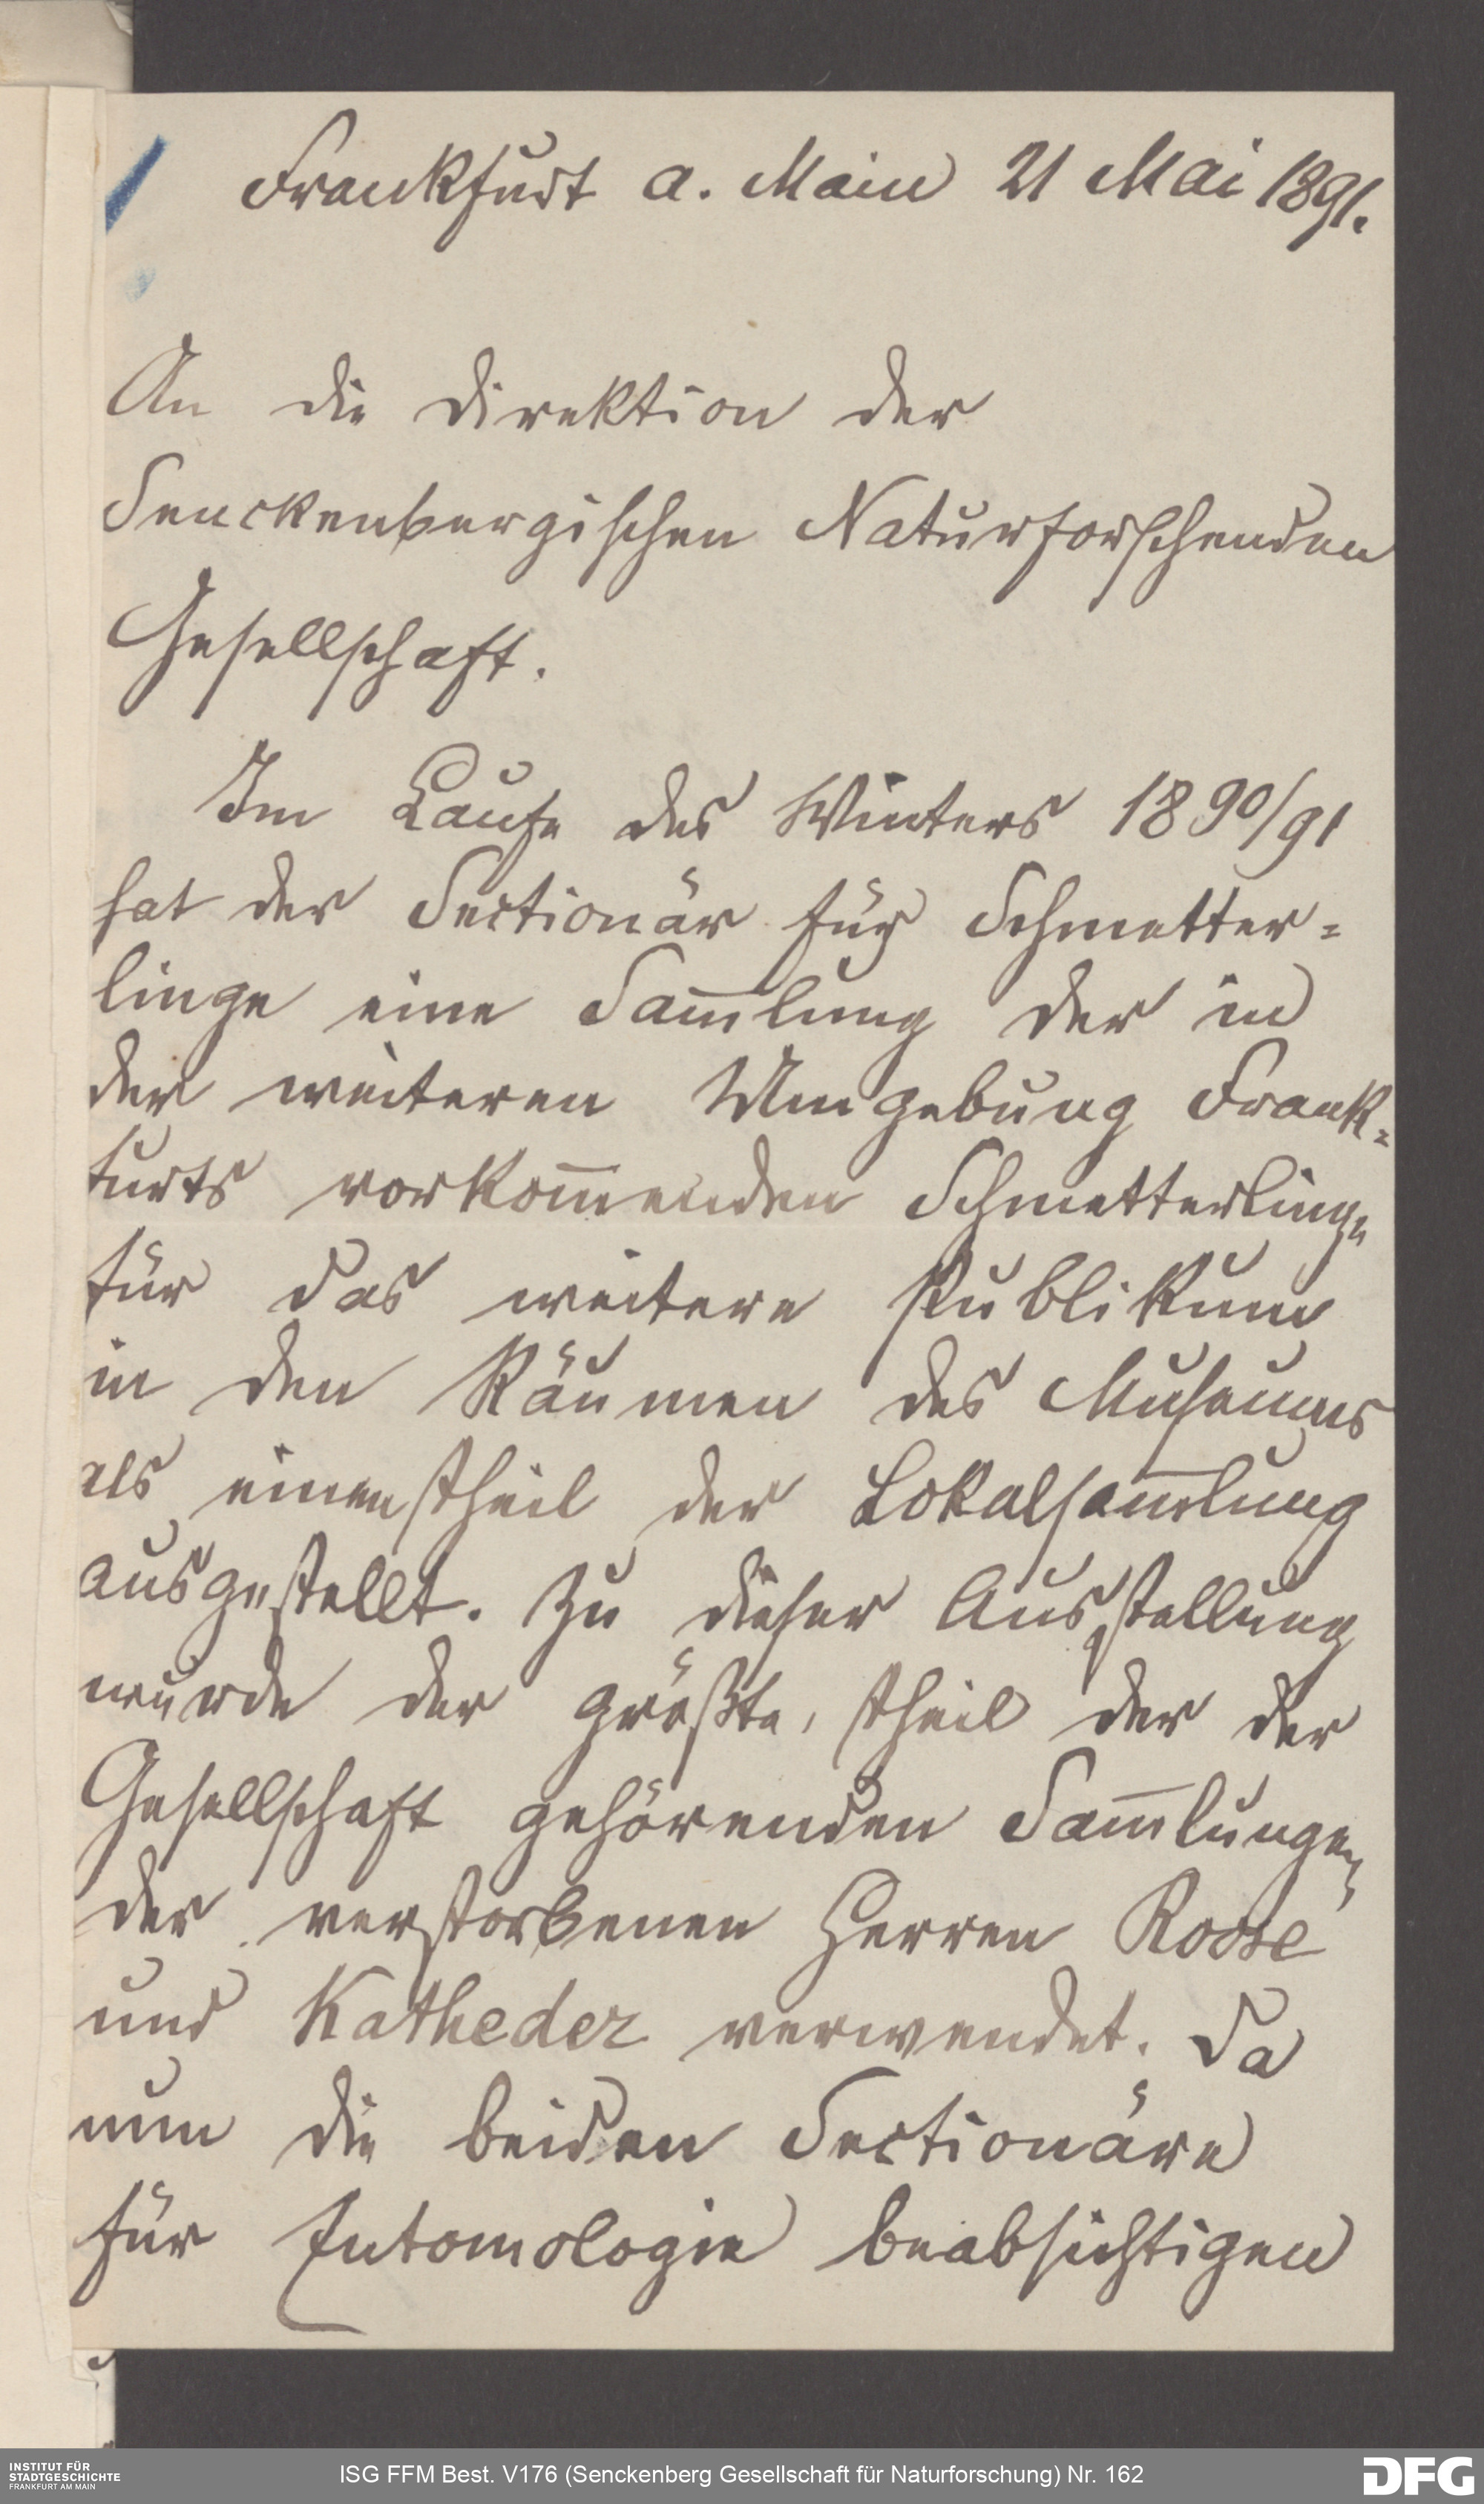 Frankfurt a. Main 21 Mai 1891.
An die Direktion der
Senckenbergischen Naturforschenden
Gesellschaft.
Im Laufe des Winters 1890/91
hat der Sectionär für Schmetter=
linge eine Sam̅lung der in
der weiteren Umgebung Frank=
furts vorkom̅enden Schmetterlinge
für das weitere Publikum
in den Räumen des Museums
als einen Theil der Lokalsam̅lung
ausgestellt. Zu dieser Ausstellung
wurde der größte Theil der der
Gesellschaft gehörenden Sam̅lungen
der verstorbenen Herren Roose
und Katheder verwendet. Da
nun die beiden Sectionäre
für Entomologie beabsichtigen
INSTITUT FÜR
STADTGESCHICHTE
FRANKFURT AM MAIN
ISG FFM Best. V176 (Senckenberg Gesellschaft für Naturforschung) Nr. 162
DFG